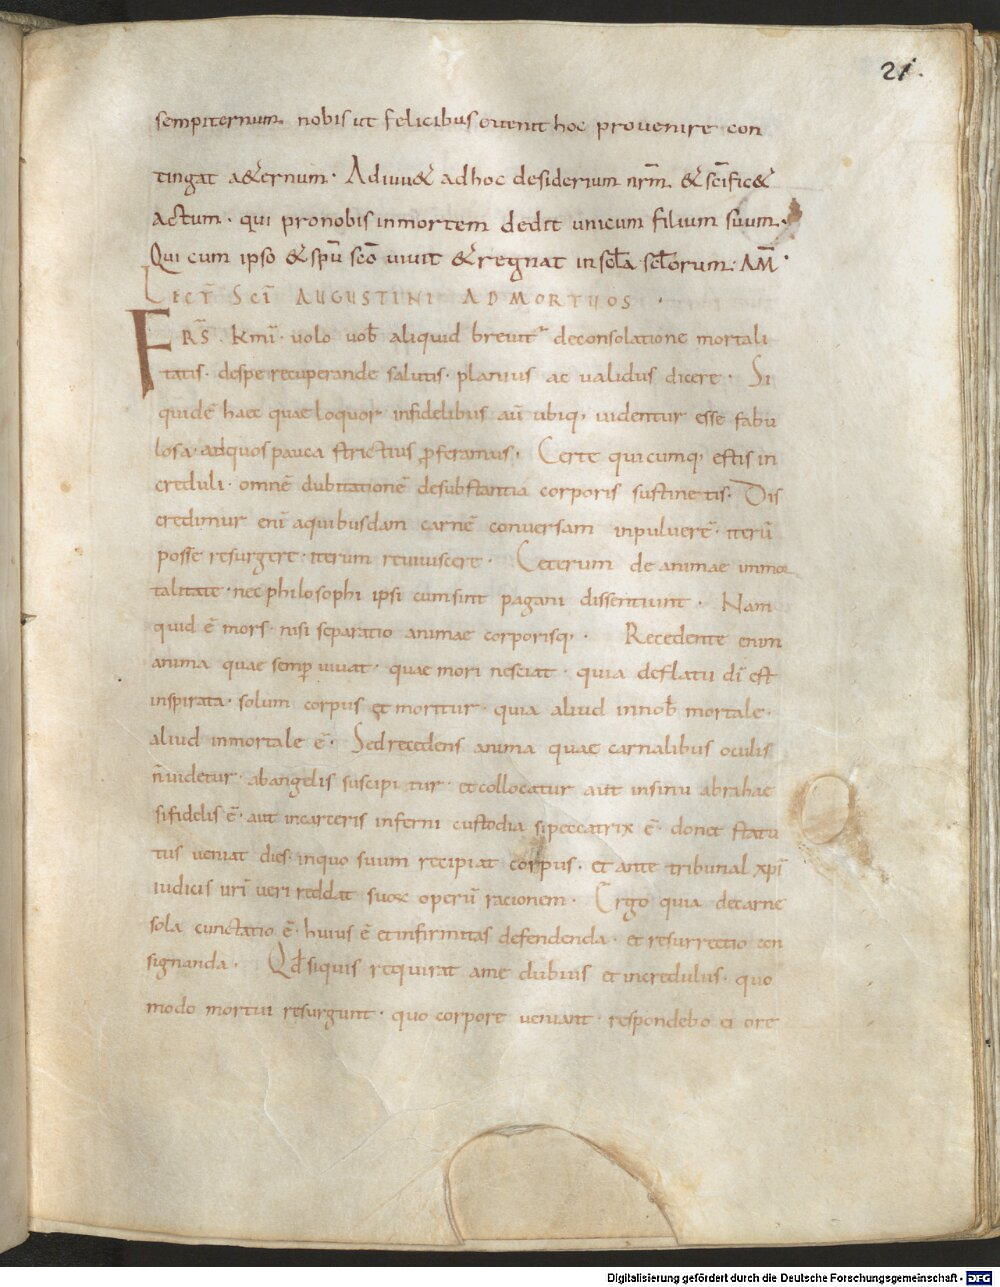 21.
sempiternum nobis ut felicibus euenit hoc prouenire con
tingat a&ernum · Adiuu& ad hoc desiderium nr̄m & sc̄ific&
actum · qui pro nobis in mortem dedit unicum filium suum ·
Qui cum ipso & spū sc̄o uiuit & regnat in sc̄la sc̄lorum · AM̄ ·
LECT̄ SCĪ AUGUSTINI AD MORTUOS ·
FRS̄ · Kmī · uolo uob̄ aliquid breuit̄ de consolatione mortali
tatis · de spe recuperande salutis · planius ac validus dicere · Si
quidē haec quae loquor infidelibus aū ubiq; uidentur esse fabu
losa · ad quos pauca strictius ꝓferamus · Certe quicumq; estis in
creduli · omnē dubitationē de substantia corporis sustinetis · Dis
credimur enī a quibusdam carnē conversam in pulverē · iterū
posse resurgere · iterum reuiuiscere · Ceterum de animae inmor
talitate · nec philosophi ipsi cum sint pagani dissentiunt · Nam
quid ē mors · nisi separatio animae corporisq; · Recedente enim
anima quae semꝑ uiuat · quae mori nesciat · quia de flatu dī est
inspirata · solum corpus et moritur · quia aliud in nob̄ mortale ·
aliud inmortale ē · Sed recedens anima quae carnalibus oculis
n̄ uidetur · ab angelis suscipitur · et collocatur aut in sinu abrahae
si fidelis ē · aut in carceris inferni custodia si peccatrix ē · donec statu
tus ueniat dies · in quo suum recipiat corpus · et ante tribunal xp̄i
iudicis urī ueri reddat suoꝝ operū racionem · Ergo quia de carne
sola cunctatio ē · huius ē et infirmitas defendenda · et resurrectio con
signanda · Qd̄ si quis requirat a me dubius et incredulus · quo
modo mortui resurgunt · quo corpore ueniant · respondebo ei ore
Digitalisierung gefördert durch die Deutsche Forschungsgemeinschaft - DFG